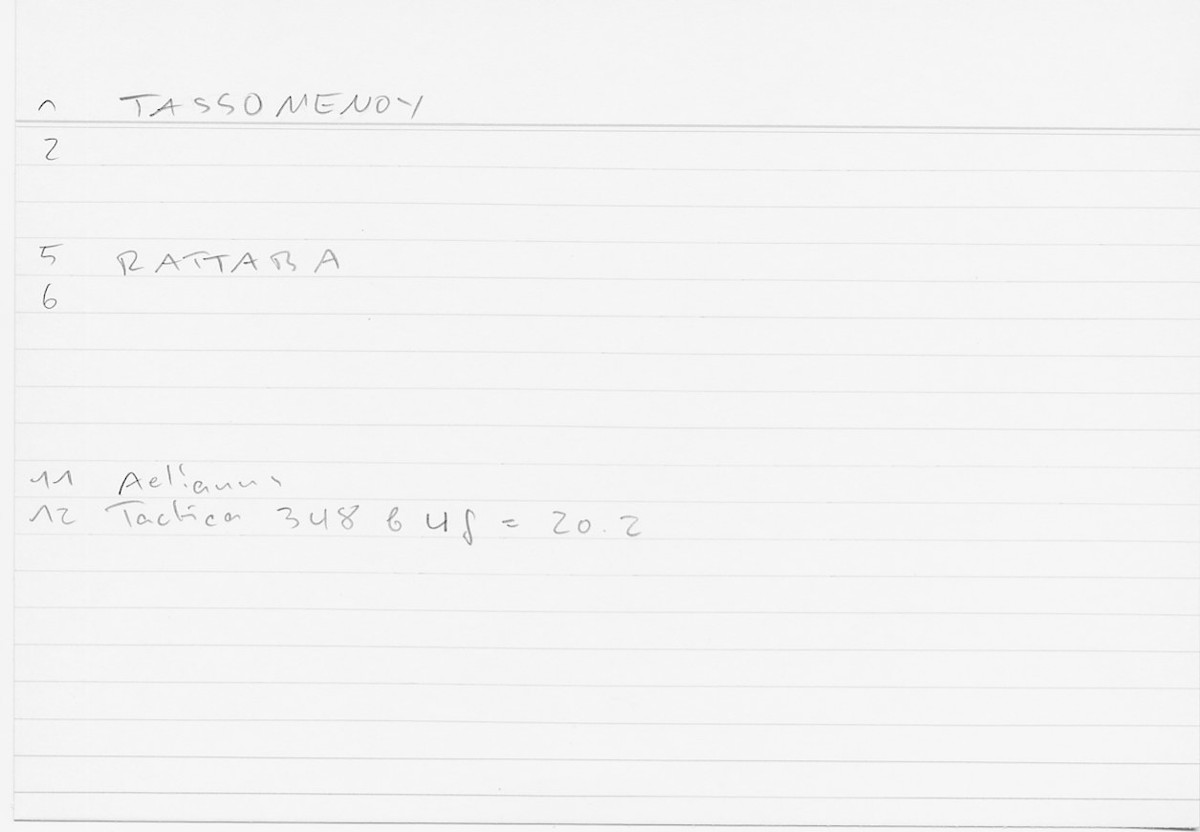 1 TASSOMENOY
2
5 RATTABA
6
11 Aelianus
12 Tactica 348 b 4f = 20.2